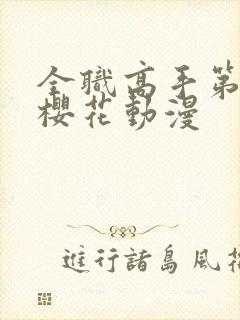 全職高手第
櫻花動漫
進行諸島風花